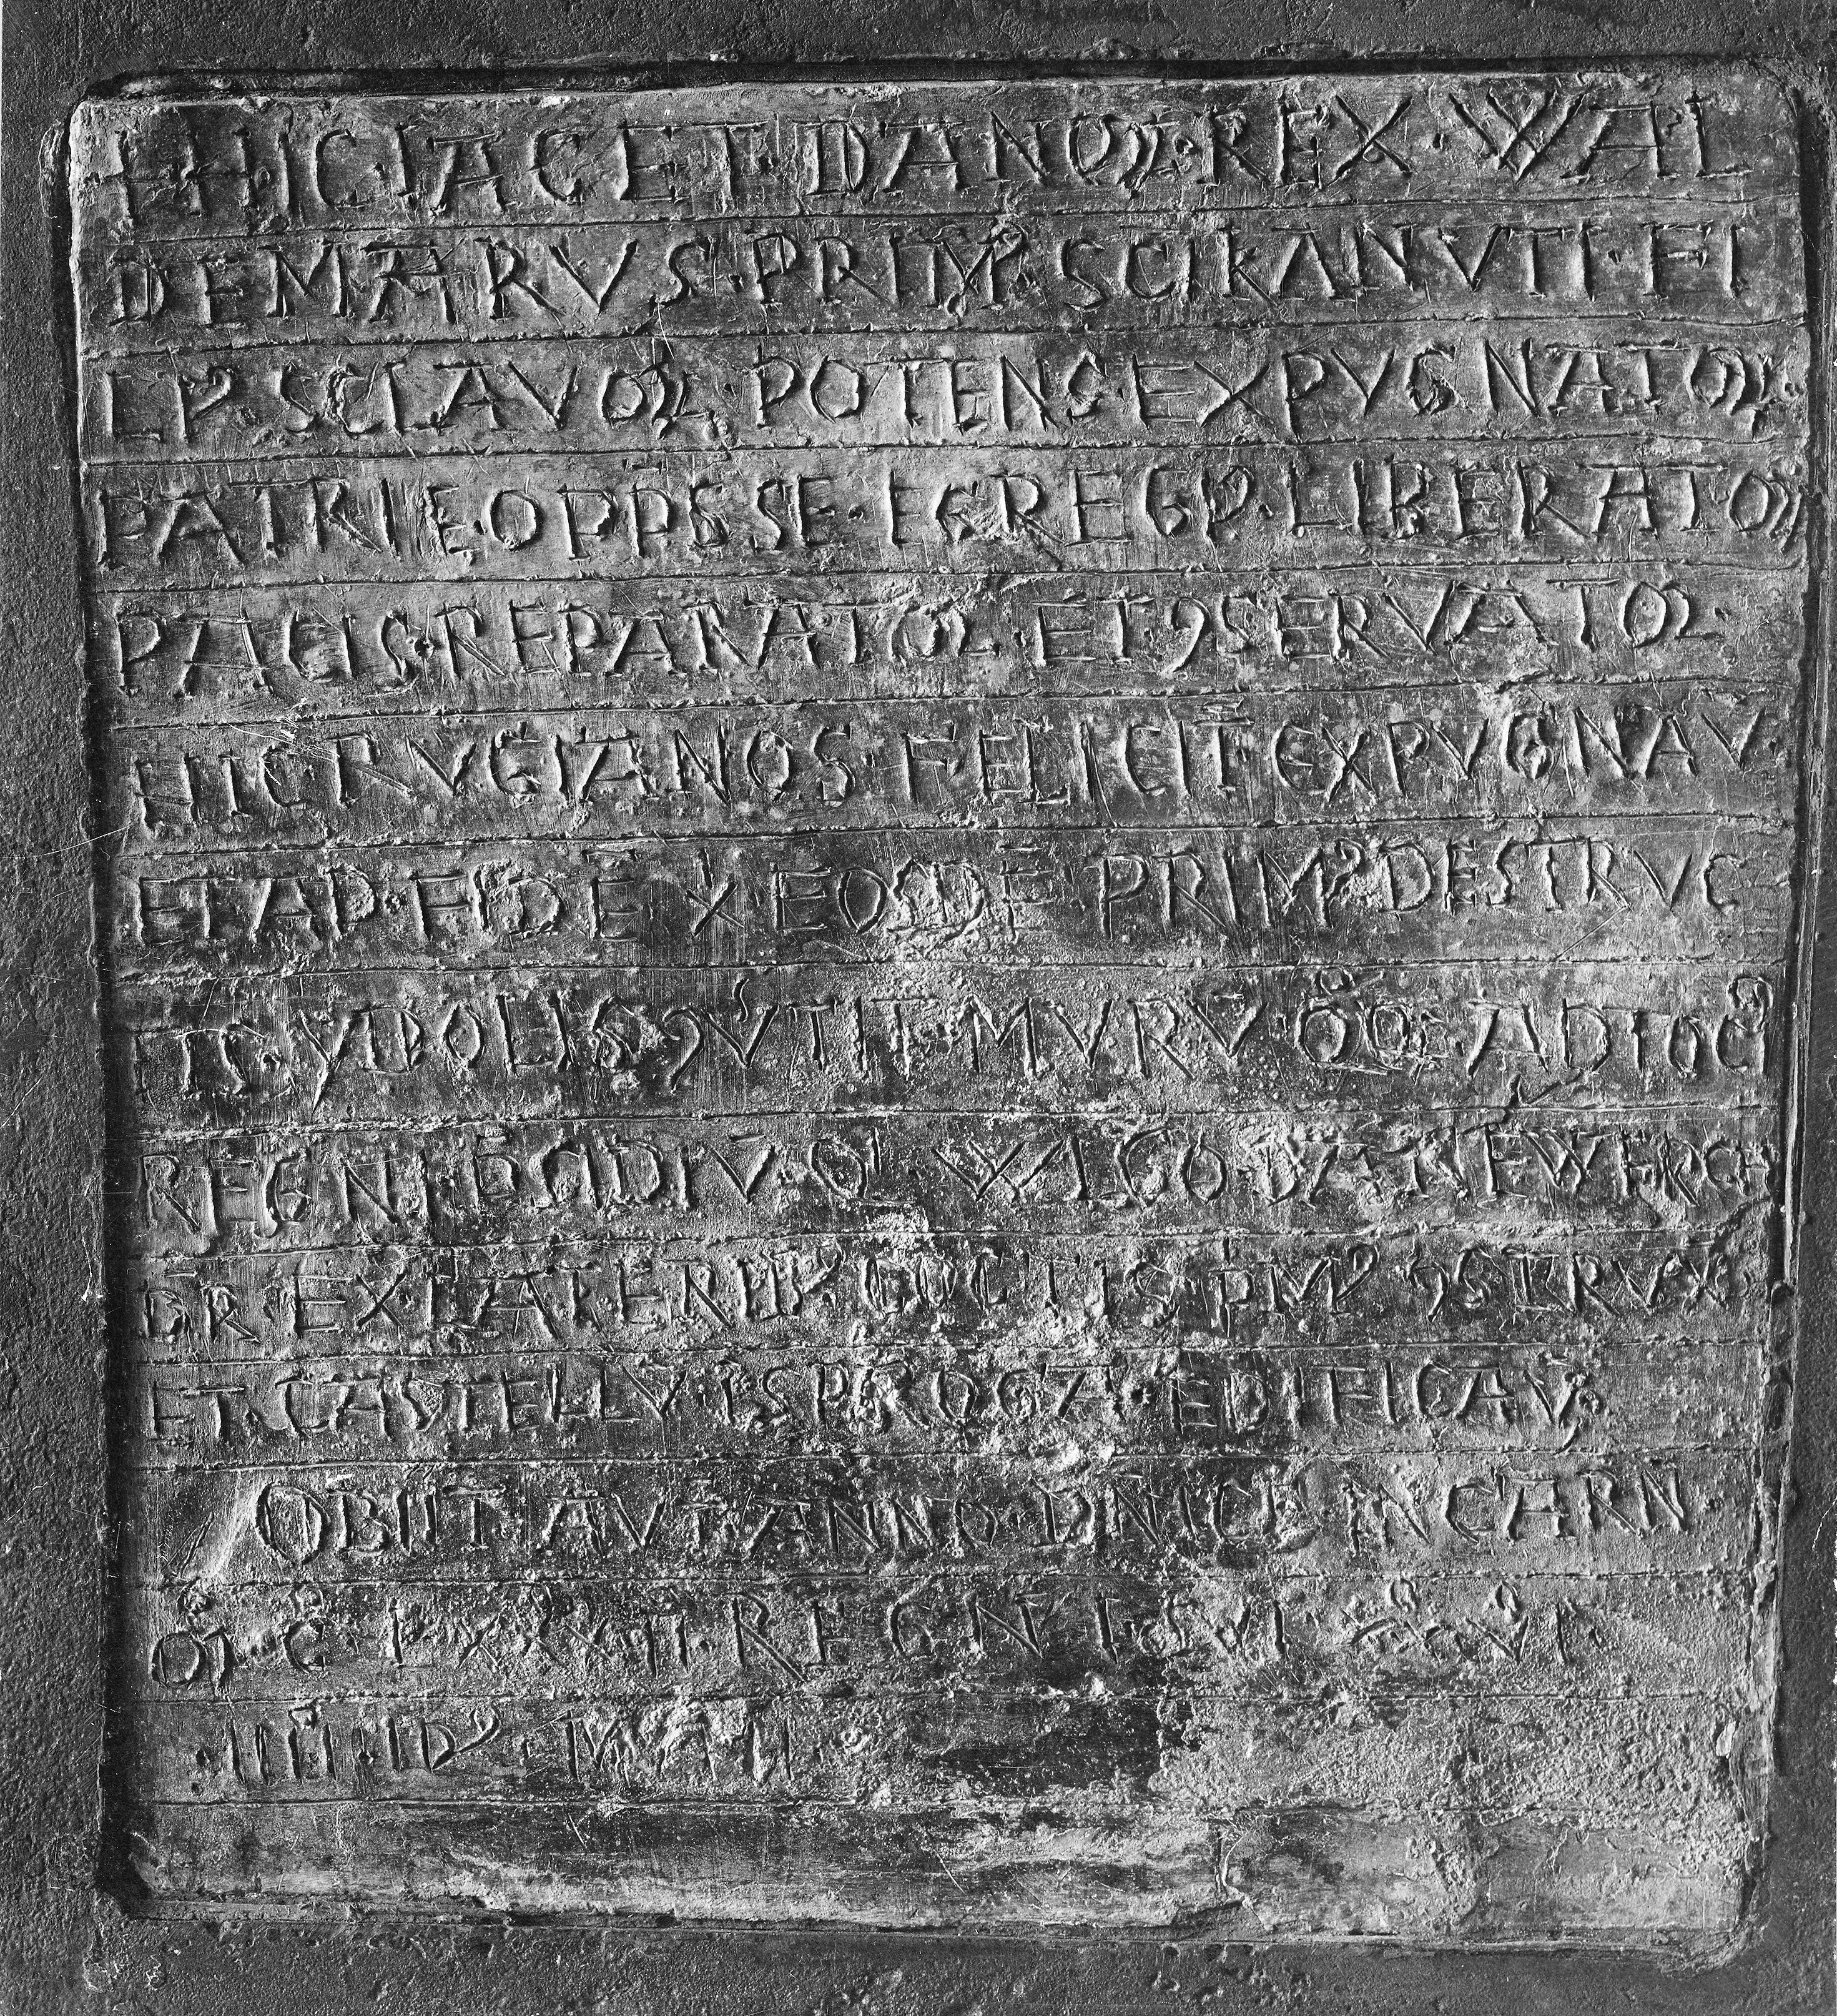 + HIC·IACET·DANOꝜ·REX·WAL
DEMARVS·PRIMꝰ·SCI KANVTI·FI
LIꝰ SCLAVOꝜ·POTENS·EXPVGNATOR
PATRIE·OPP̄SSE·EGREGIꝰ·LIBERATOR
PACIS·REPARATOR·ET·ꝯSERVATOR·
HIC RVGIANOS FELICIT̄ EXPVGNAV
ET AD·FIDĒ X EOSDĒ PRIMꝰ DESTRVC
TIS·YDOLIS ꝯV̄TIT·MVRV̄·QOQE·ADTOCIꝰ
REGNI P̄SIDIV̄·QI WLGO DANEWERCH
DR̄·EX·LATERIBꝰ COCTIS PMꝰ ꝯSTRVX
ET·CASTELLV̄ I SPROGA·EDIFICAV
OBIIT·AVT̄ ANNO·DNICE INCARN
M̊·C̊·LXXXII·REGNI·SVI XX̊V̊I·
·IIII·IDꝰ·MAII